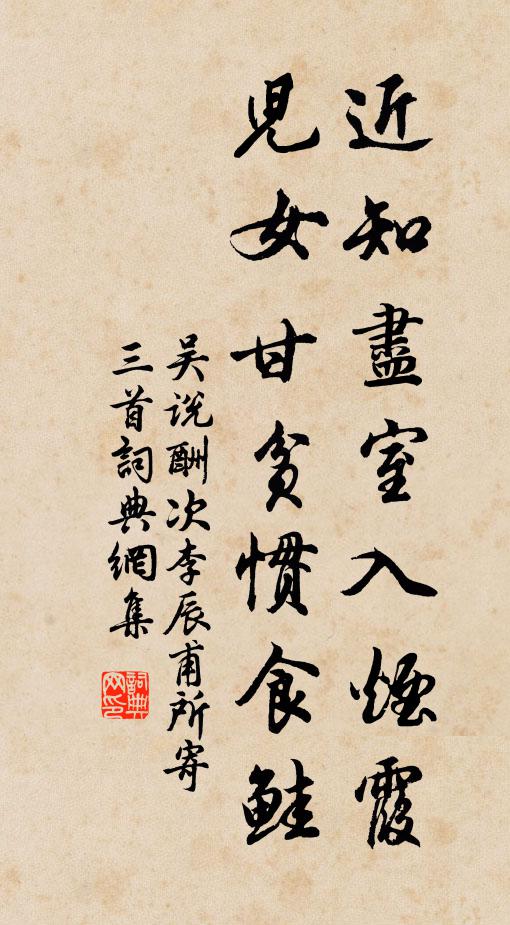 近知盡室入煙霞
兒女甘貧慣食鮭
吴説酬次李辰甫所寄
三首詞典網集
詞典网印